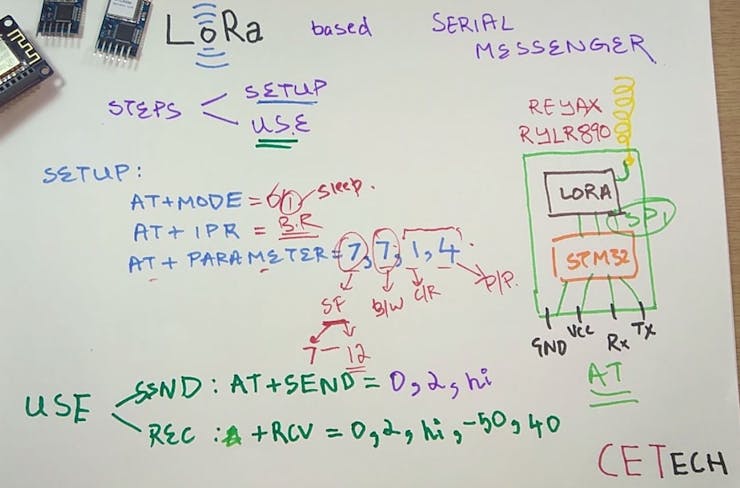 LoRa based SERIAL MESSENGER
STEPS
SETUP
USE
REYAX
RYLR890
SETUP:
AT+MODE = 0/1 sleep.
AT+IPR = B.R
AT+PARAMETER=7,7,1,4
SF B/W C/R P/P.
7-12
LORA
SPI
STM32
GND Vcc Rx Tx
AT
USE
SEND: AT+SEND = 0,2,hi
REC: +RCV = 0,2,hi,-50,40
CETECH